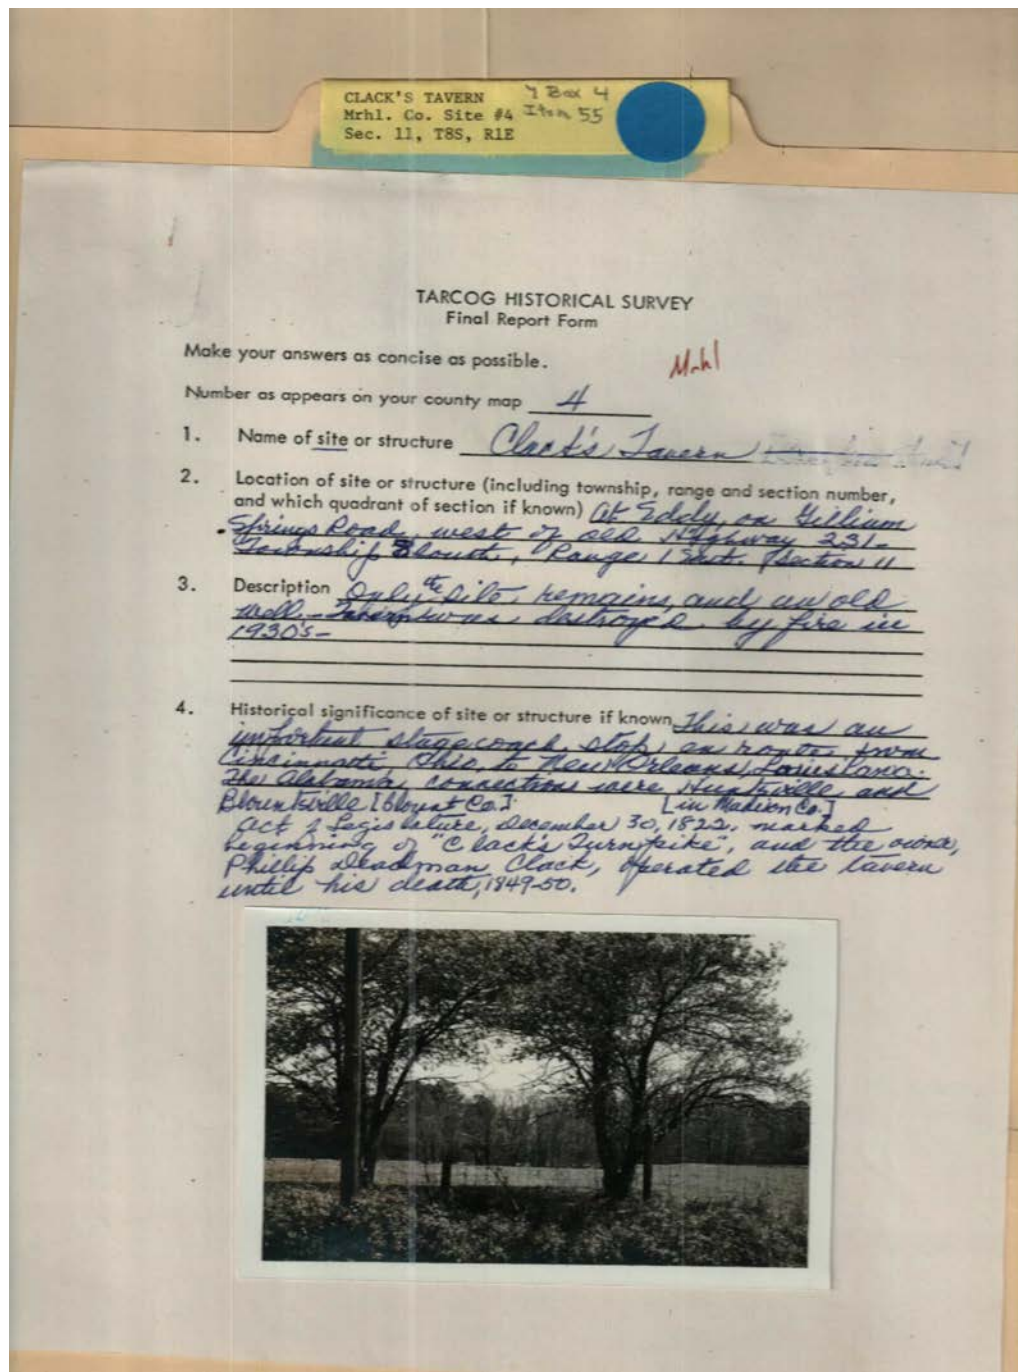 CLACK'S TAVERN
Mrhl. Co. Site #4
Sec. 11, T8S, R1E
Box 4
Item 55
TARCOG HISTORICAL SURVEY
Final Report Form
Make your answers as concise as possible.
Mrhl
Number as appears on your county map 4
1. Name of site or structure Clack's Tavern
2. Location of site or structure (including township, range and section number,
and which quadrant of section if known) At Eddy, on Gilliam
Springs Road, west of old Highway 231-
Township 8 South, Range 1 East, Section 11
3. Description Only the site remains, and an old
well. was destroyed by fire in
1930's-
4. Historical significance of site or structure if known This was an
important stagecoach stop en route from
Cincinnati, Ohio, to New Orleans, Louisiana.
The Alabama connections were Huntsville and
Blountsville [Blount Co.] [in Madison Co.]
Act of Legislature, December 30, 1822, marked
beginning of "Clack's Turnpike", and the owner,
Phillip Deadman Clack, operated the tavern
until his death, 1849-50.